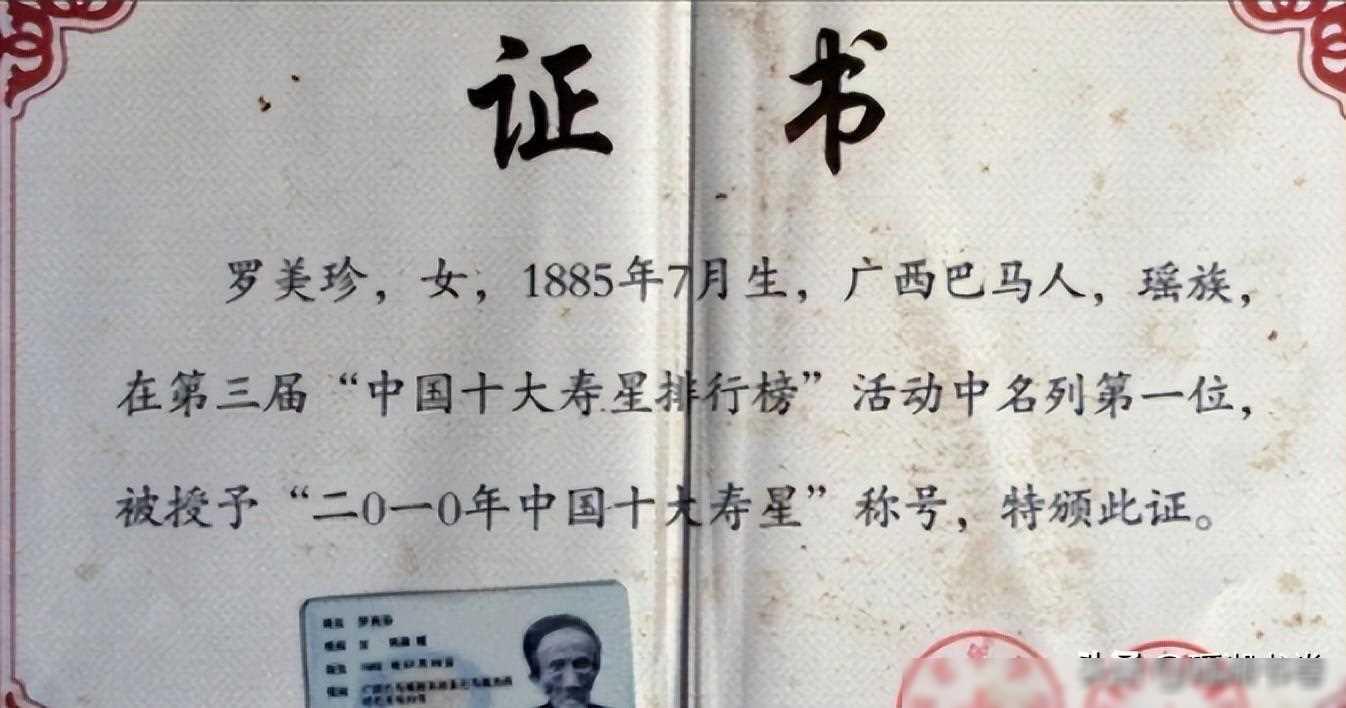 证 书
罗美珍，女，1885年7月生，广西巴马人，瑶族，
在第三届“中国十大寿星排行榜”活动中名列第一位，
被授予“二0一0年中国十大寿星”称号，特颁此证。
罗美珍